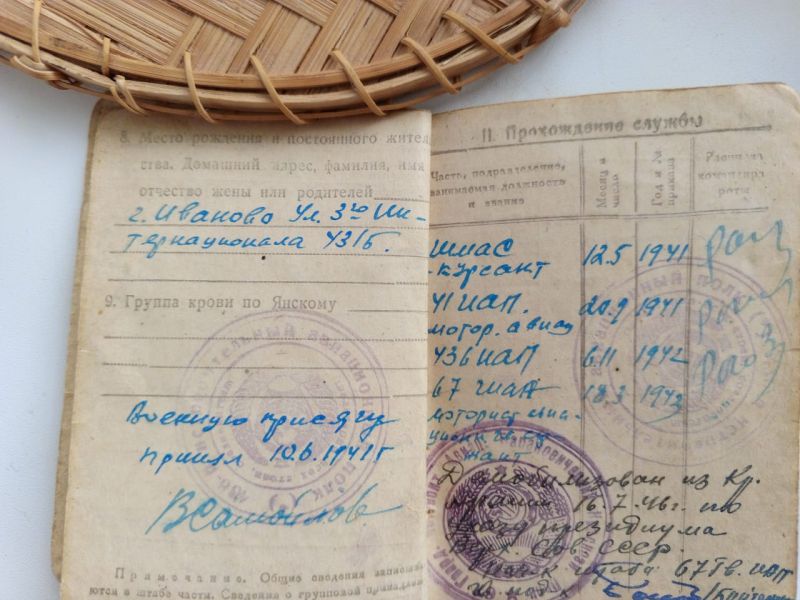 8. Место рождения и постоянного житель
ства. Домашний адрес, фамилия, имя
отчество жены или родителей
г. Иваново Ул. 3го Ин-
тернационала 43/б.
9. Группа крови по Янскому
Военную присягу
принял 10.6.1941 г
В Самойлов
Примечание. Общие сведения записыва
ются в штабе части. Сведения о групповой принадлеж
II. Прохождение службы
Часть, подразделение, занимаемая должность и звание
Месяц и число
Год и № приказа
Роспись командира роты
ШМАС
-курсант 12.5 1941
41 ИАП. 20.9 1941
мотор. авиац
436 ИАП 6.11 1942
67 ИАП 18.3 1943
моторист авиа-
ции
Демобилизован из Кр.
армии 16.7.46г. по
указу президиума
Верх. Сов СССР.
штаба 67 Гв. ИАП